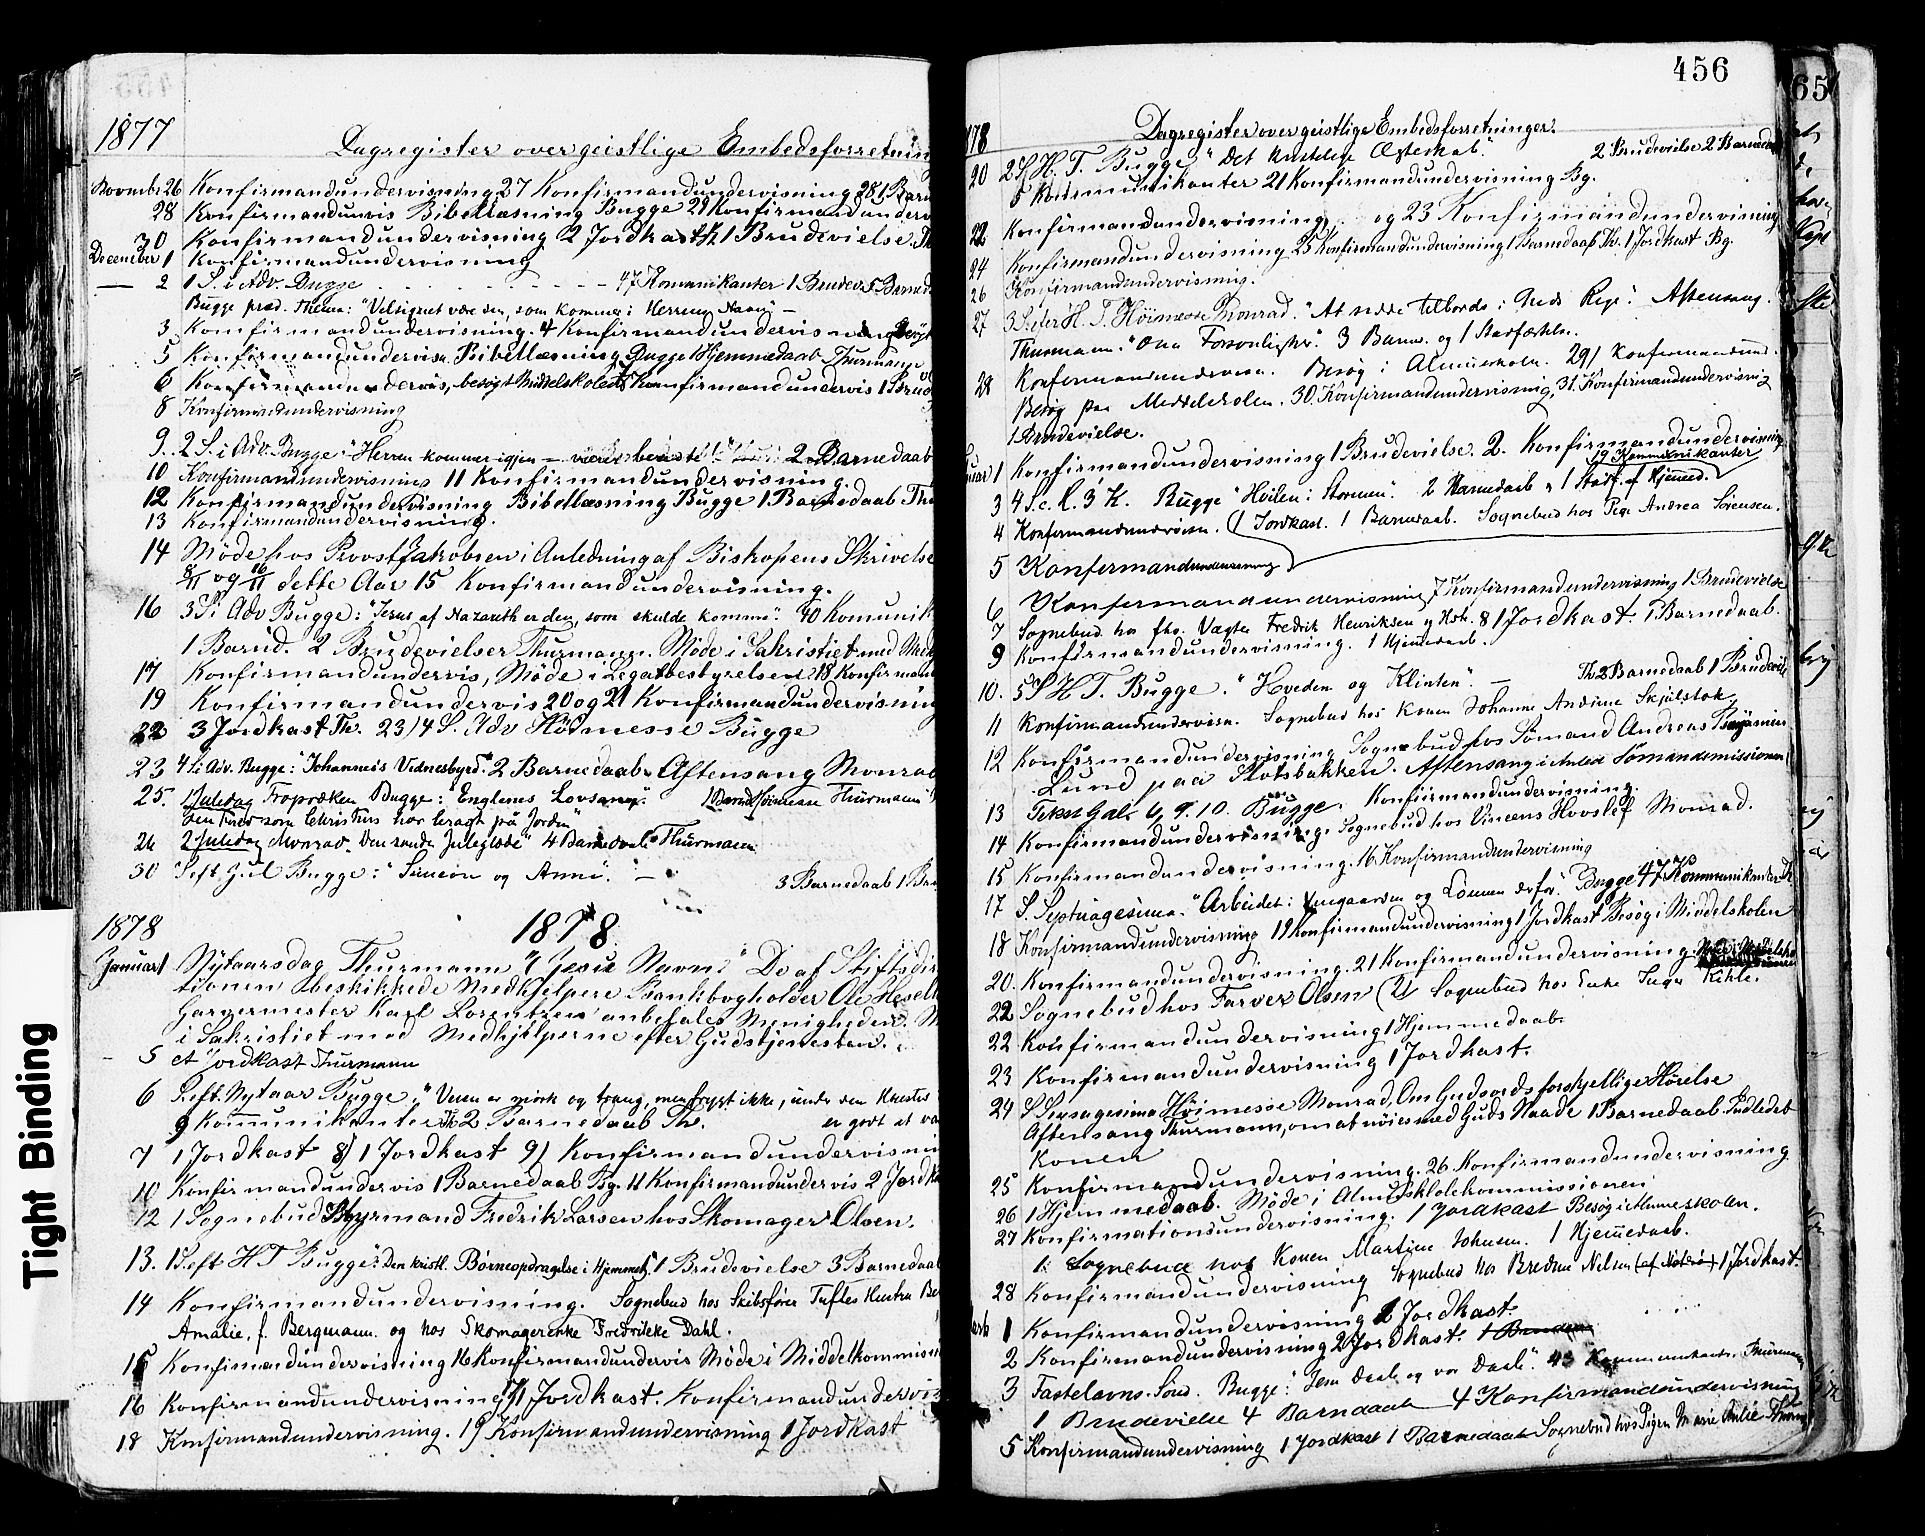 1877
Dagregister over geistlige Embedsforretning
November 26 Konfirmandundervisning 27 Konfirmandundervisning 28 1 Barn
28 Konfirmandundervis Bibellæsning Bugge 29 Konfirmandunderv
30 Konfirmandundervisning 2 Jordkast 1 Brudevielse
December 1 Konfirmandundervisning
2 1 S. i Adv. Bugge 47 Komunikanter 1 Brudev 5 Barned
Bugge præd. Thema: "Velsignet være den, som kommer i Herrens Navn" –
3 Konfirmandundervisning. 4 Konfirmandundervisning
5 Konfirmandundervisn. Bibellæsning Bugge 1 Hjemmedaab Thurmann
6 Konfirmandundervis, besøgt Middelskolen Konfirmandundervis 1 Brud
8 Konfirmandundervisning
9. 2 S. i Adv. Bugge: "Herren kommer igjen – værer beredte!" 2 Barnedaab
10 Konfirmandundervisning 11 Konfirmandundervisning.
12 Konfirmandundervisning Bibellæsning Bugge 1 Barnedaab Thu
13 Konfirmandundervisning.
14 Møde hos Provst Jakobsen i Anledning af Biskopens Skrivelse
8/11 og 16/11 dette Aar 15 Konfirmandundervisning.
16 3 S. i Adv Bugge: "Jesus af Nazareth er den, som skulde komme". 40 Komunik
1 Barnd. 2 Brudevielser Thurmann. Møde i Sakristiet med Med
17 Konfirmandundervis, Møde i Legatbestyrelsen 18 Konfirmand
19 Konfirmandundervis 20 og 21 Konfirmandundervisning
22 3 Jordkast Th. 23/4 S. Adv Höimesse Bugge
23 4 S. i Adv. Bugge: "Johannes's Vidnesbyrd." 2 Barnedaab. Aftensang Monrad
25. 1 Juledag Froprædken Bugge: "Englenes Lovsang". Höimesse Thurmann
den Fred som Christus har bragt på Jorden"
26 2 Juledag Monrad. Den sande Juleglæde" 4 Barnedaab Thurmann
30 S. eft. Jul Bugge: "Simeon og Anna". – 3 Barnedaab 1 Bar
1878 1878.
Januar 1 Nytaarsdag Thurmann "I Jesu Navn" De af Stiftsdir
tionen beskikkede Medhjelpere Bankbogholder Ole Hesel
Garvermester Karl Lorentzen anbefales Menigheden. M
i Sakristiet med Medhjelperne efter Gudstjenesten.
5 et Jordkast Thurmann
6 S. eft. Nytaar Bugge. "Veien er mörk og trang, men frygt ikke, under den Høiestes
9 Kommunikanter 2 Barnedaab Th. er godt at væ
7 1 Jordkast 8/ 1 Jordkast 9/ Konfirmandundervisni
10 Konfirmandundervis 1 Barnedaab Bg. 11 Konfirmandundervis 2 Jordka
12 1 Sognebud Styrmand Fredrik Larsen hos Skomager Olsen.
13. 1 S. eft H T Bugge: "Den kristl. Børneopdragelse i Hjemmet". 1 Brudevielse 3 Barnedaab
14 Konfirmandundervisning. Sognebud hos Skibsfører Tuftes Hustru Be
Amalie, f. Bergmann. og hos Skomagerenke Fredrikke Dahl.
15 Konfirmandundervisning 16 Konfirmandundervis Møde i Middelkommis
16 Konfirmandundervisning 17/1 Jordkast. Konfirmandundervis
18 Konfirmandundervisning. 19 Konfirmandundervisning 1 Jordkast
456
78 Dagregister over geistlige Embedsforretninger.
20 2 S. H. T. Bugge "det kristelige Ægteskab". 2 Brudevielse 2 Barneda
5 Kommunikanter 21 Konfirmandundervisning Bg.
22 Konfirmandundervisning og 23 Konfirmandundervisning
24 Konfirmandundervisning 25 Konfirmandundervisning 1 Barnedaab Th. 1 Jordkast Bg.
26 Konfirmandundervisning.
27 3 S. efter H. T. Höimesse Monrad. "At sidde tilbords i Guds Rige". Aftensang.
Thurmann: "Om Forsonlighed". 3 Barned. og 1 Stadfæstelse.
28 Konfirmandundervisn. Besøg i Almueskolen. 29/ Konfirmandund.
Besøg paa Middelskolen. 30. Konfirmandundervisning, 31. Konfirmandundervisning
1 Brudevielse.
uar 1 Konfirmandundervisning 1 Brudevielse. 2. Konfirmandundervisning
19 Kommunikanter
3 4 S. e. H. 3 K. Bugge "Hvilen i Stormen". 2 Barnedaab, 1 Stadf. af Hjemmed.
4 Konfirmandundervisn. 1 Jordkast. 1 Barnedaab. Sognebud hos Pige Andrea Sörensen.
5 Konfirmandundervisning
6 Konfirmandundervisning 7 Konfirmandundervisning 1 Brudevielse
7 Sognebud hos fhv. Vægter Fredrik Henriksen og Hstr. 8 1 Jordkast. 1 Barnedaab.
9 Konfirmandundervisning. 1 Hjemmedaab.
10. 5 S H T. Bugge. "Hveden og Klinten". – Th. 2 Barnedaab 1 Brudeviel
11 Konfirmandundervisn. Sognebud hos Konen Johanne Andrine Skjelstok
12 Konfirmandundervisning Sognebud hos Sömand Andreas Benjamin
Lund paa Slotsbakken. Aftensang i Anled Sömandsmissionen
13 Tekst Gal. 6, 9. 10. Bugge. Konfirmandundervisning.
14 Konfirmandundervisning. Sognebud hos Vincens Hovslef Monrad.
15 Konfirmandundervisning. 16 Konfirmandundervisning
17 S. Septuagesima. "Arbeidet i Vingaarden og Lönnen derfor". Bugge 47 Kommunikanter
18 Konfirmandundervisning 19 Konfirmandundervisning 1 Jordkast Besög i Middelskolen
20. Konfirmandundervisning. 21 Konfirmandundervisning.
22 Sognebud hos Farver Olsen (21 Sognebud hos Enke Inger Kihle.
22 Konfirmandundervisning 1 Hjemmedaab
23 Konfirmandundervisning 1 Jordkast.
24 S Sexagesima Höimesse Monrad, Om Guds ords forskjellige Hörelse
Aftensang Thurmann, om at nöies med Guds Naade 1 Barnedaab. Indledet
Konen
25 Konfirmandundervisning. 26 Konfirmandundervisning
26 1 Hjemmedaab. Möde i Almueskolekommissionen
27 Konfirmationsundervisning. 1 Jordkast Besög i Almueskolen.
1. Sognebud hos Konen Martine Johnsen. 1 Hjemmedaab.
28 Konfirmandundervisning Sognebud hos Bredine Nelsen 1 Jordkast.
arts 1 Konfirmandundervisning 2 Jordkast.
2 Konfirmandundervisning 2 Jordkast. 1 Brudev
3 Fastelavns. Sönd. Bugge: "Jesu Daab og vor Daab". 43 Kommunikanter Thurmann
1 Brudevielse 4 Barndaab 4 Konfirmandundervisning
5 Konfirmandundervisning 1 Jordkast 1 Barnedaab Sognebud hos Pigen Marie Emilie Thom
65
Tight Binding